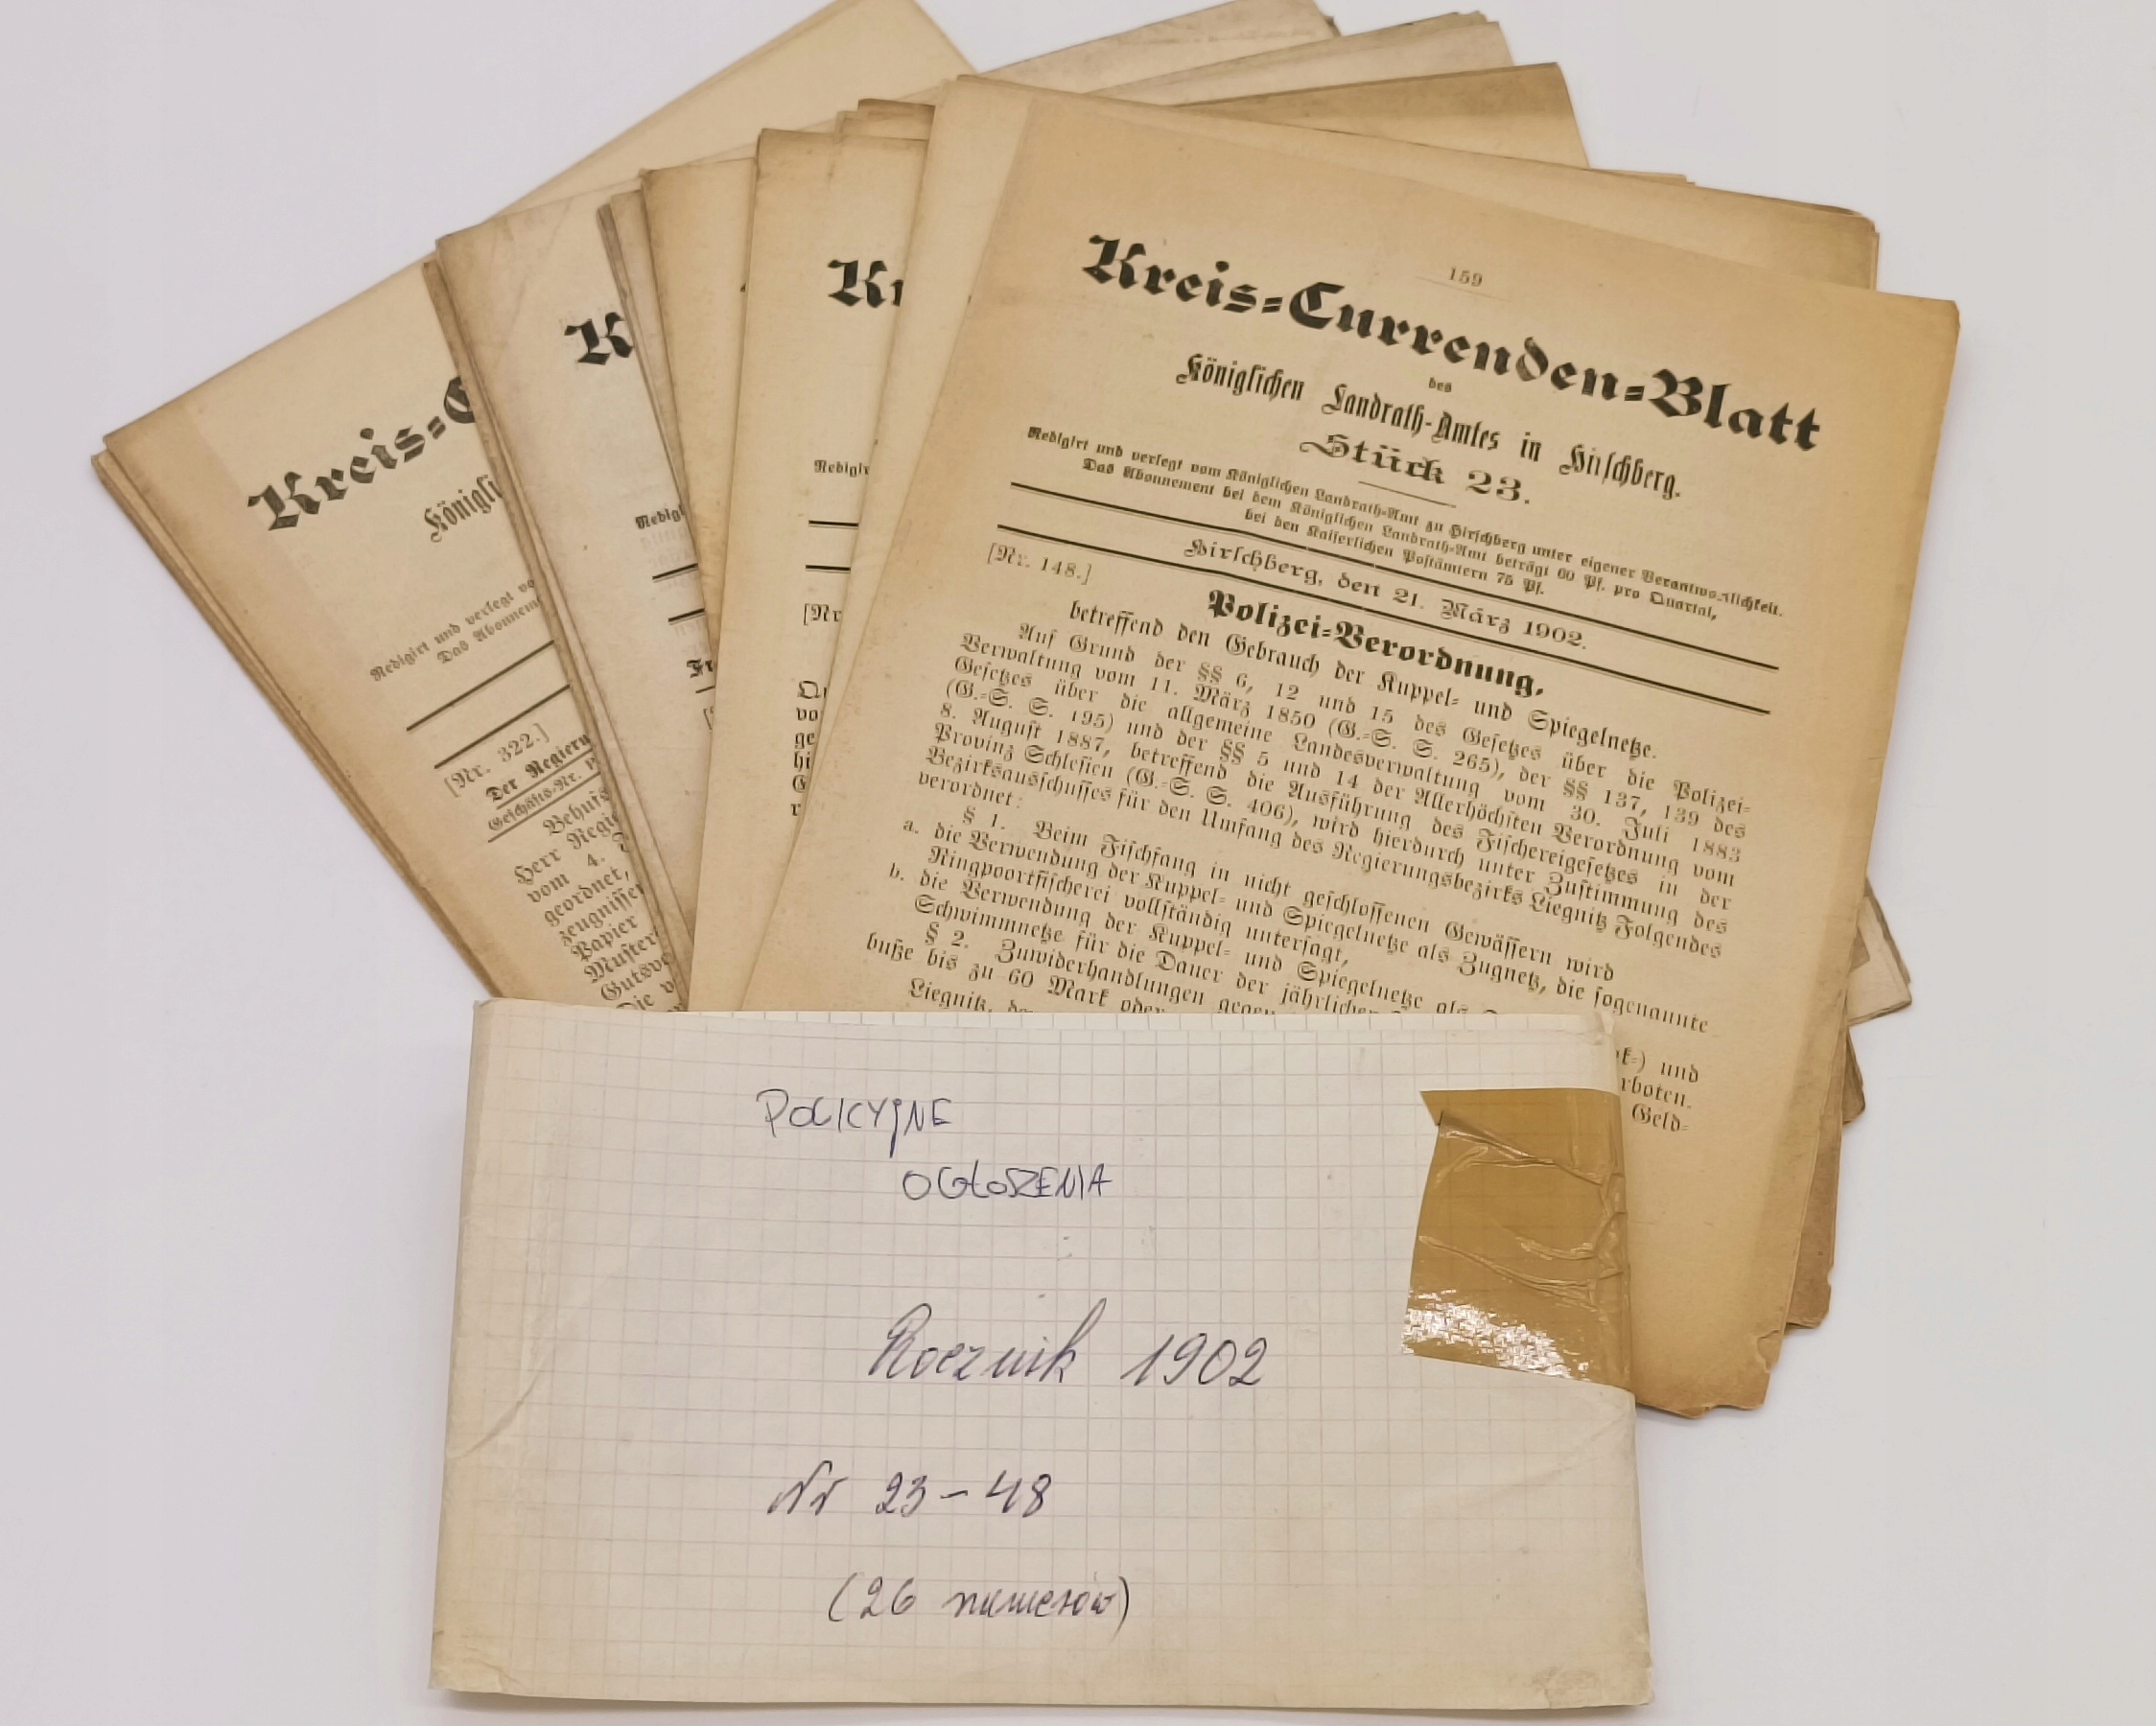 159
Kreis=Currenden=Blatt
des
Königlichen Landrath-Amtes in Hirschberg.
Stück 23.
Redigirt und verlegt vom Königlichen Landrath=Amt zu Hirschberg unter eigener Verantwortlichkeit.
Das Abonnement bei dem Königlichen Landrath=Amt beträgt 60 Pf. pro Quartal,
bei den Kaiserlichen Postämtern 75 Pf.
Hirschberg, den 21. März 1902.
[Nr. 148.]
Polizei=Verordnung,
betreffend den Gebrauch der Kuppel= und Spiegelnetze.
Auf Grund der §§ 6, 12 und 15 des Gesetzes über die Polizei=
Verwaltung vom 11. März 1850 (G.=S. S. 265), der §§ 137, 139 des
Gesetzes über die allgemeine Landesverwaltung vom 30. Juli 1883
(G.=S. S. 195) und der §§ 5 und 14 der Allerhöchsten Verordnung vom
8. August 1887, betreffend die Ausführung des Fischereigesetzes in der
Provinz Schlesien (G.=S. S. 406), wird hierdurch unter Zustimmung des
Bezirksausschusses für den Umfang des Regierungsbezirks Liegnitz Folgendes
verordnet:
§ 1. Beim Fischfang in nicht geschlossenen Gewässern wird
a. die Verwendung der Kuppel= und Spiegelnetze als Zugnetz, die sogenannte
Ringpoortfischerei vollständig untersagt,
b. die Verwendung der Kuppel= und Spiegelnetze als
) und
Schwimmnetze für die Dauer der jährlichen
rboten.
§ 2. Zuwiderhandlungen gegen
Geld=
buße bis zu 60 Mark oder
Liegnitz, de
Kr
Redigir
[Nr
K
Redigi
Kreis=C
Königli
Redigirt und verlegt vo
Das Abonnem
[Nr. 322.]
Der Regieru
Geschäfts=Nr. P
Behufs
Herr Regie
vom 4.
geordnet,
zeugnissen
Papier
Muster
Gutsvo
Die v
POLICYJNE
OGŁOSZENIA
Rocznik 1902
Nr 23-48
(26 numerów)